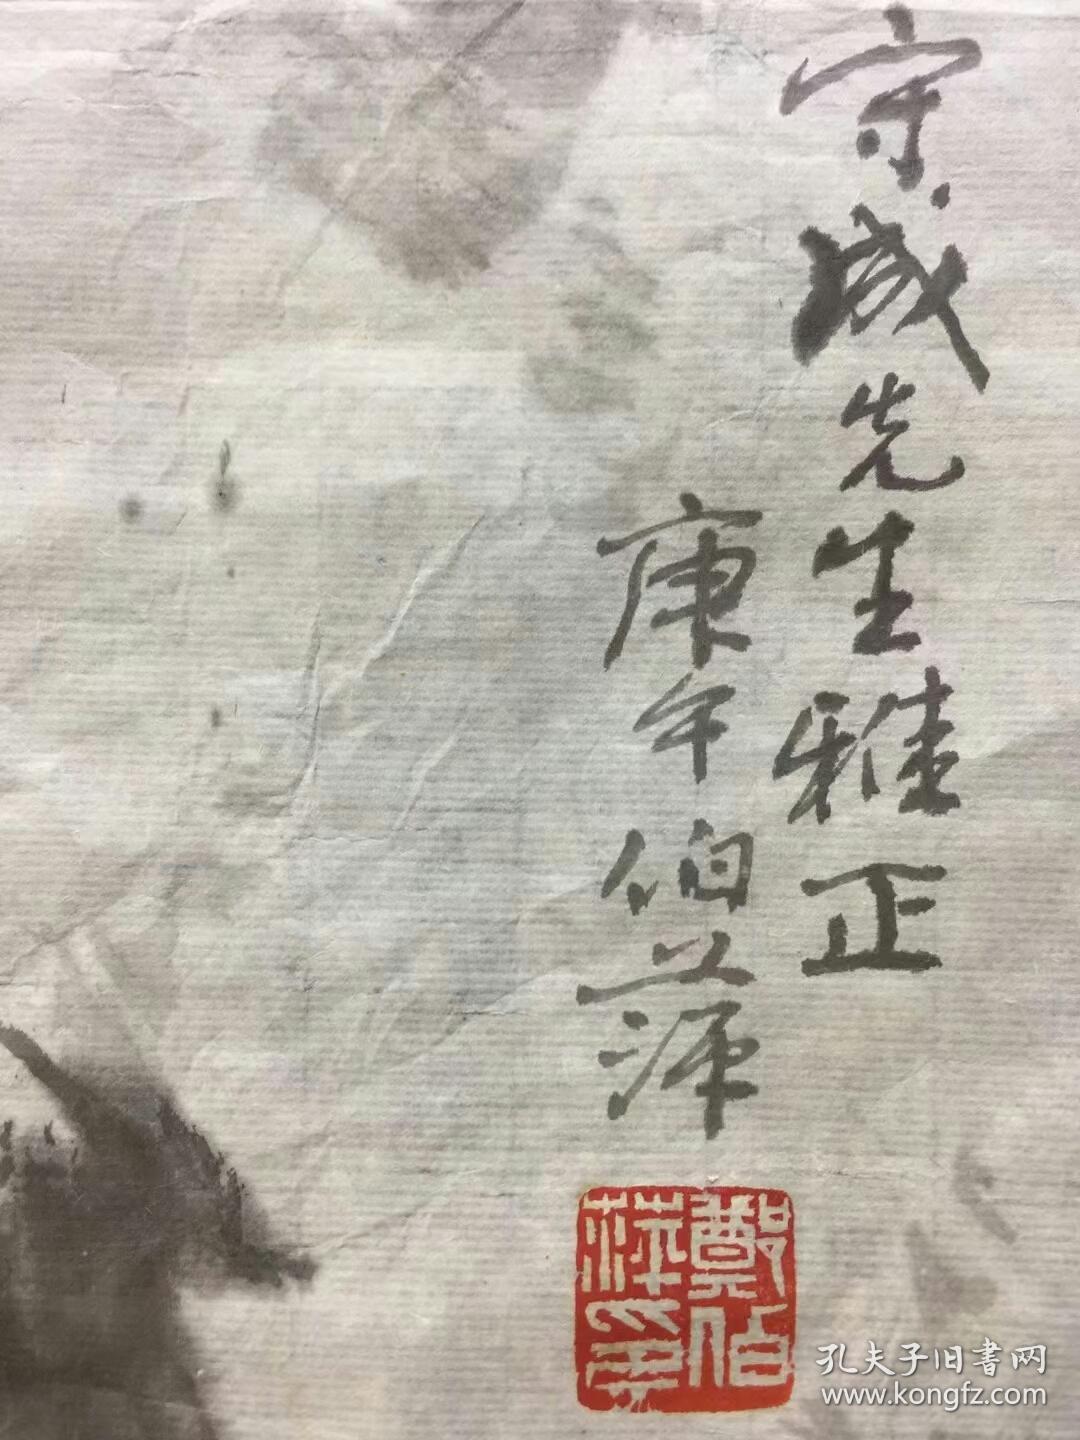 守城先生雅正
庚午伯萍
鄭伯萍印
孔夫子旧書网
www.kongfz.com